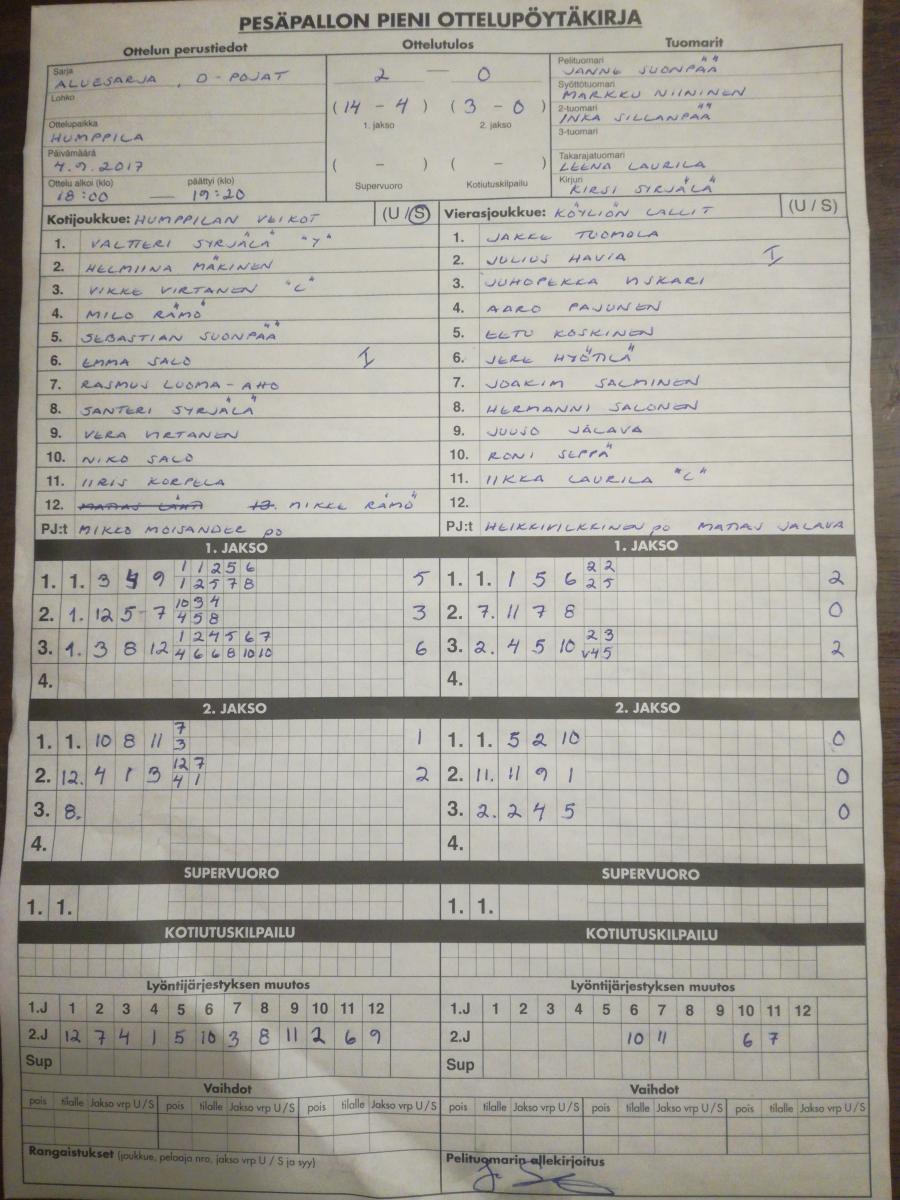 PESÄPALLON PIENI OTTELUPÖYTÄKIRJA
Ottelun perustiedot Ottelutulos Tuomarit
Sarja
ALUESARJA, D-POJAT
Lohko
Ottelupaikka
HUMPPILA
Päivämäärä
4.9.2017
Ottelu alkoi (klo) päättyi (klo)
18:00 — 19:20
2 — 0
(14 - 4) (3 - 0)
1. jakso 2. jakso
( - ) ( - )
Supervuoro Kotiutuskilpailu
Pelituomari
JANNE SUONPÄÄ
Syöttötuomari
MARKKU NIININEN
2-tuomari
INKA SILLANPÄÄ
3-tuomari
Takarajatuomari
LEENA LAURILA
Kirjuri
KIRSI SYRJÄLÄ
Kotijoukkue: HUMPPILAN VEIKOT (U / S)
1. VALTTERI SYRJÄLÄ "Y"
2. HELMIINA MÄKINEN
3. VIKKE VIRTANEN "L"
4. MILO RÄMÖ
5. SEBASTIAN SUONPÄÄ
6. EMMA SALO I
7. RASMUS LUOMA-AHO
8. SANTERI SYRJÄLÄ
9. VERA VIRTANEN
10. NIKO SALO
11. IIRIS KORPELA
12. MATIAS LÄHTI 13. MIKKE RÄMÖ
PJ:t MIKKO MOISANDER po
Vierasjoukkue: KÖYLIÖN LALLIT (U / S)
1. JAKKE TUOMOLA
2. JULIUS HAVIA I
3. JUHOPEKKA VISKARI
4. AARO PAJUNEN
5. EETU KOSKINEN
6. JERE HYÖTILÄ
7. JOAKIM SALMINEN
8. HERMANNI SALONEN
9. JUUSO JALAVA
10. RONI SEPPÄ
11. IIKKA LAURILA "L"
12.
PJ:t HEIKKI VILKKINEN po MATIAS JALAVA
1. JAKSO
1. 1. 3 4 9 1 1 2 5 6 5
1 2 5 7 8
2. 1. 12 5 7 10 3 4 3
4 5 8
3. 1. 3 8 12 1 2 4 5 6 7 6
4 6 6 8 10 10
4.
1. JAKSO
1. 1. 1 5 6 2 2 2
2 5
2. 7. 11 7 8 0
3. 2. 4 5 10 2 3 2
v4 5
4.
2. JAKSO
1. 1. 10 8 11 7 1
3
2. 12. 4 1 3 12 7 2
4 1
3. 8.
4.
2. JAKSO
1. 1. 5 2 10 0
2. 11. 11 9 1 0
3. 2. 2 4 5 0
4.
SUPERVUORO SUPERVUORO
1. 1. 1. 1.
KOTIUTUSKILPAILU KOTIUTUSKILPAILU
Lyöntijärjestyksen muutos Lyöntijärjestyksen muutos
1.J 1 2 3 4 5 6 7 8 9 10 11 12 1.J 1 2 3 4 5 6 7 8 9 10 11 12
2.J 12 7 4 1 5 10 3 8 11 2 6 9 2.J 10 11 6 7
Sup Sup
Vaihdot Vaihdot
pois tilalle Jakso vrp U / S pois tilalle Jakso vrp U / S pois tilalle Jakso vrp U / S pois tilalle Jakso vrp U / S pois tilalle Jakso vrp U / S pois tilalle Jakso vrp U / S
Rangaistukset (joukkue, pelaaja nro, jakso vrp U / S ja syy) Pelituomarin allekirjoitus